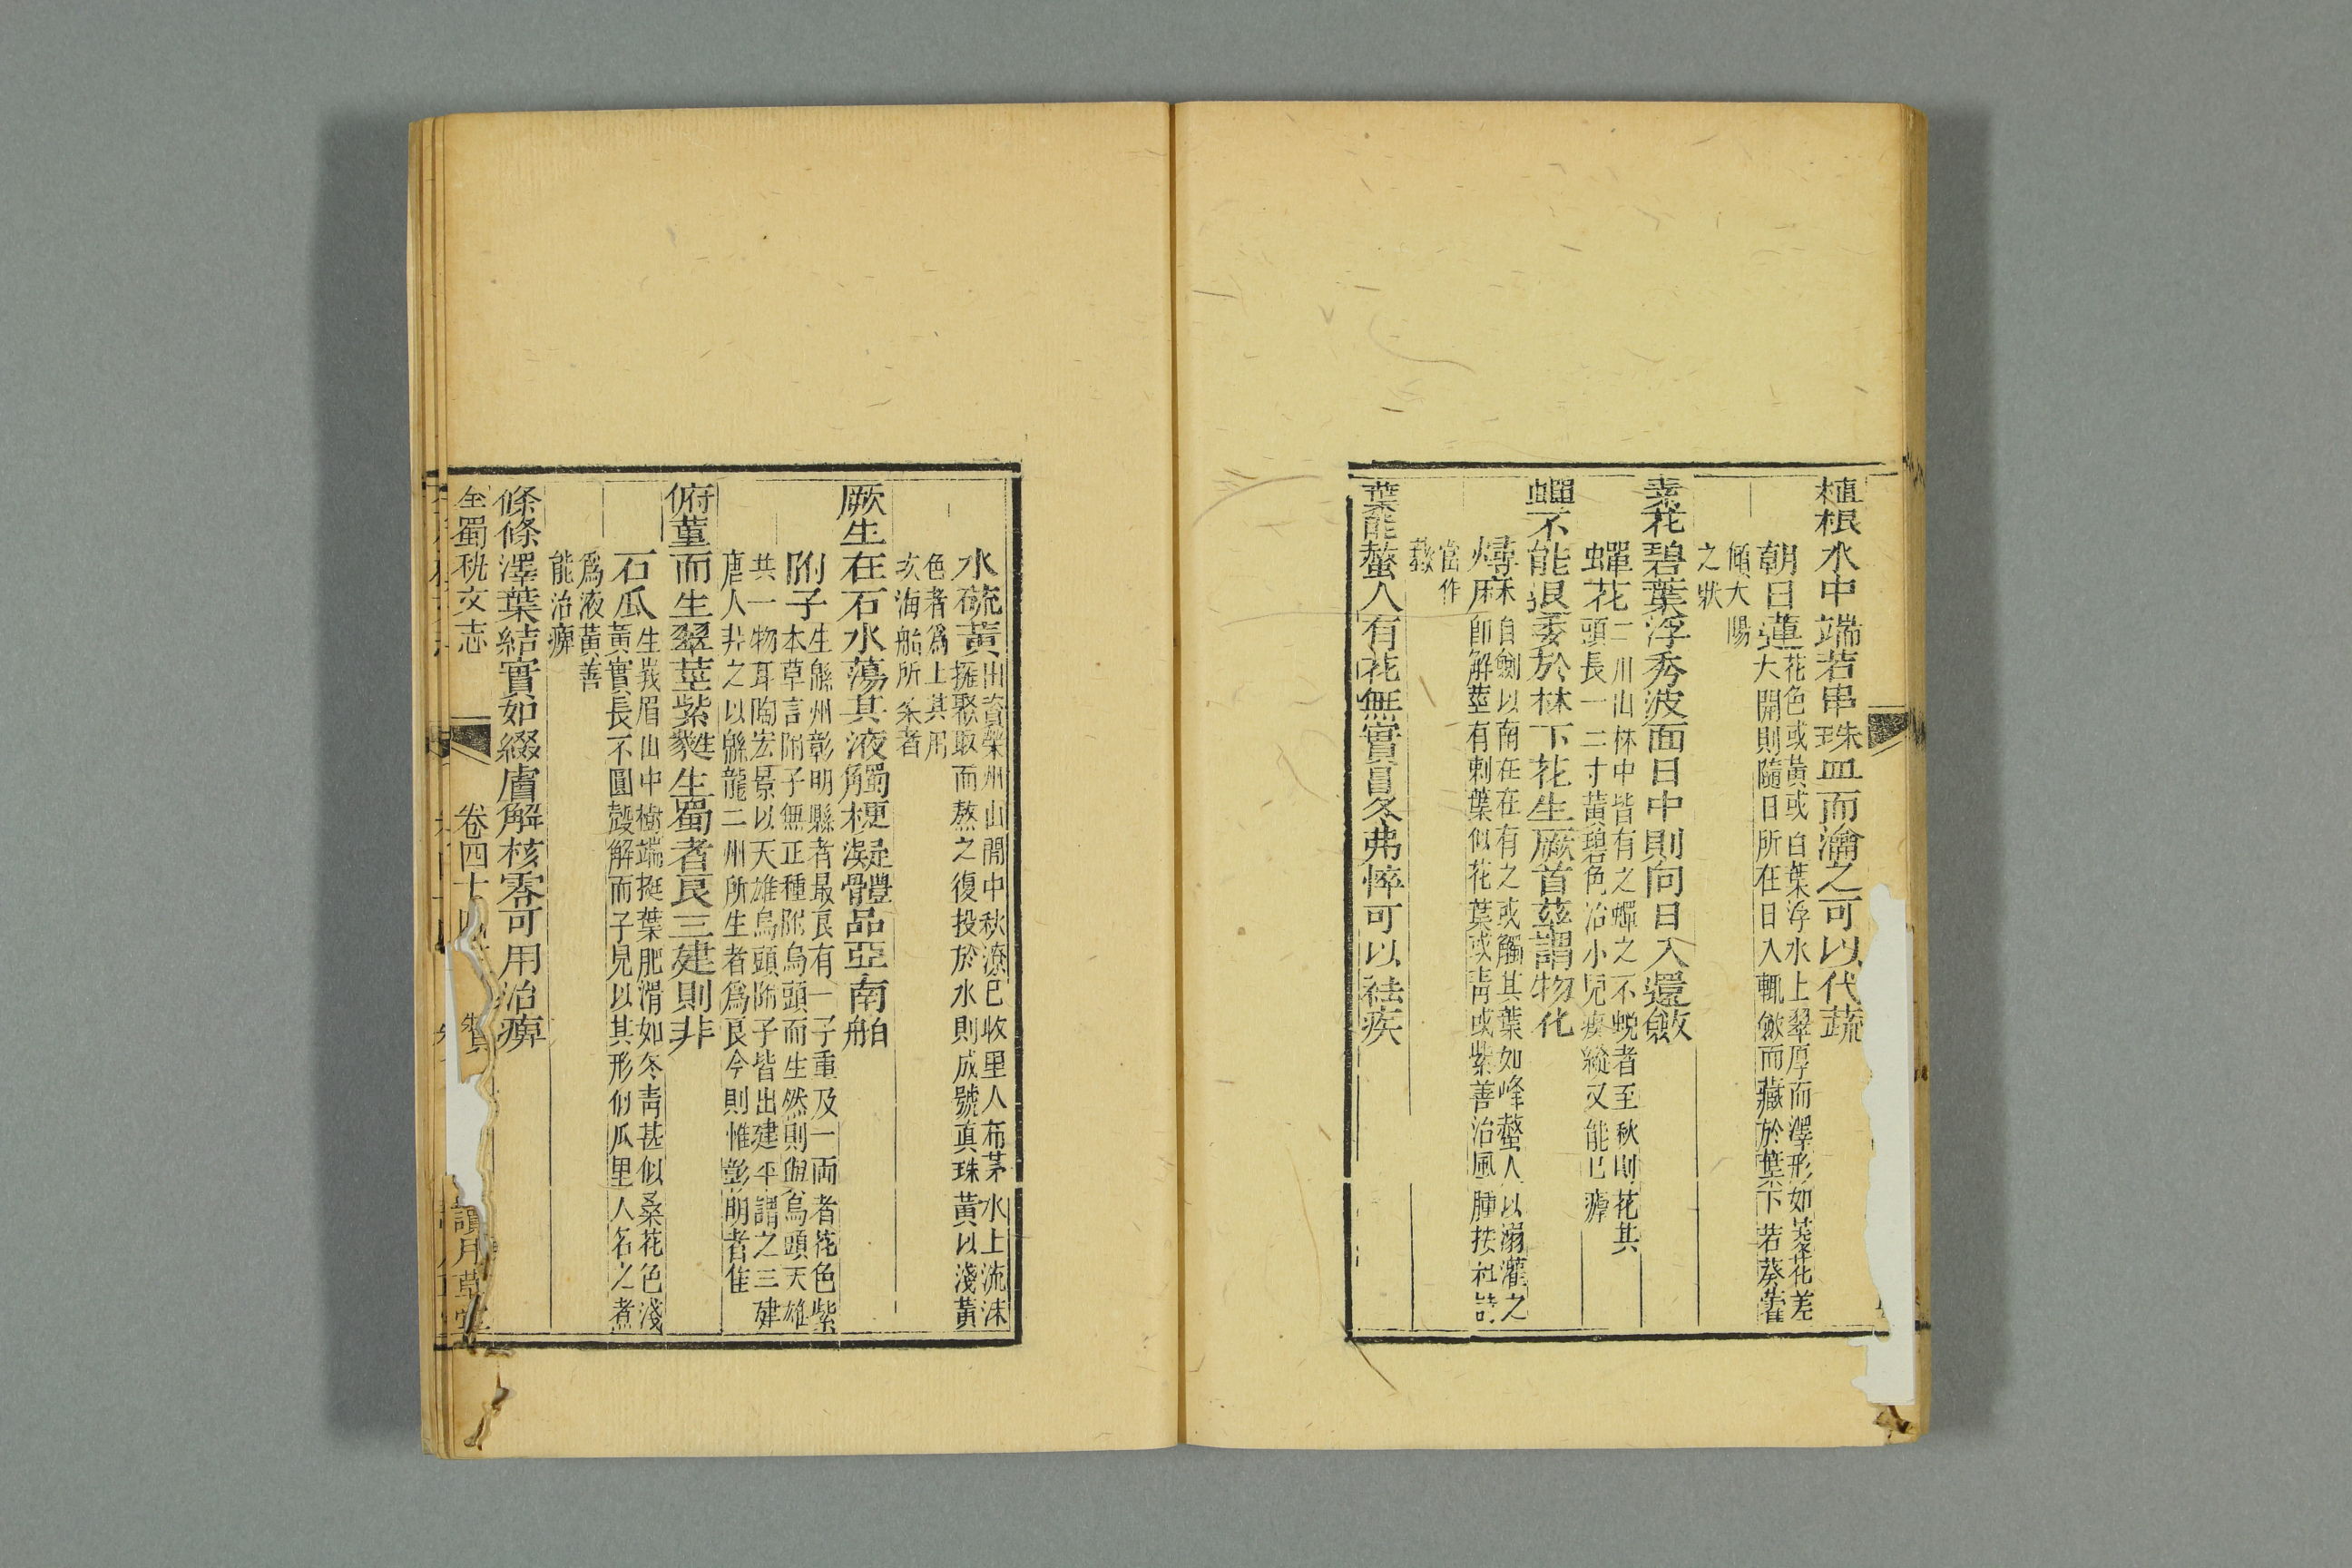 植根水中端若串珠皿而瀹之可以代蔬
朝日蓮花色或黃或白葉浮水上翠厚而澤形如菱花差
大開則隨日所在日入輒斂而藏於葉下若葵藿
傾大陽
之狀
素花碧葉浮秀波面日中則向日入還斂
蟬花二川山林中皆有之蟬之不蛻者至秋則花其
頭長一二寸黃碧色治小兒瘈瘲又能已瘧
蟬不能退委於林下花生厥首茲謂物化
燖麻自劍以南在在有之或觸其葉如蜂螫人以溺灌之
即解莖有刺葉似花葉或靑或紫善治風腫按杜詩
當作
葉能螫人有花無實冒冬弗悴可以祛疾
水硫黃出資榮州山間中秋潦已收里人布茅水上流沫
擁聚取而熬之復投於水則成號真珠黃以淺黃
色者爲上其用
亥海舶所來者
厥生在石水蕩其液觸梗凝體品亞南舶
附子生緜州彰明縣者最良有一子重及一兩者花色紫
本草言附子無正種附烏頭而生然則與烏頭天雄
共一物耳陶宏景以天雄烏頭附子皆出建平謂之三建
唐人非之以緜龍二州所生者爲良今則惟彰明者佳
俯菫而生翠莖紫蕤生蜀者良三建則非
石瓜生峩眉山中樹端挺葉肥滑如冬靑甚似桑花色淺
黃實長不圓殼解而子見以其形似瓜里人名之煮
爲液黃善
能治痹
條條澤葉結實如綴膚解核零可用治痹
全蜀秇文志 卷四十四 讀月草堂